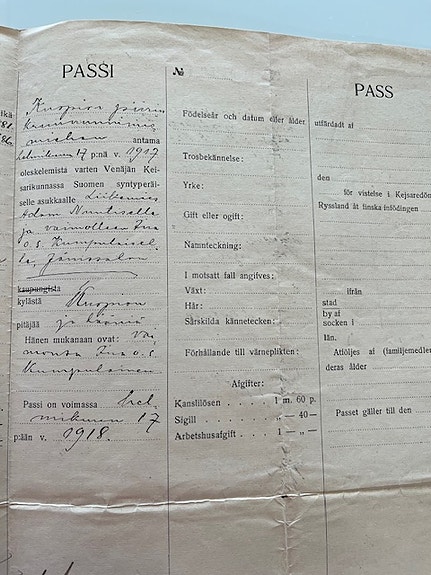 PASSI
Kuopion
antama
helmikuun 17 p:nä v. 1917
oleskelemista varten Venäjän Kei-
sarikunnassa Suomen syntyperäi-
selle asukkaalle
Adam
ja vaimolleen Iina
o.s. Kumpulaisel-
le,
kaupungista
kylästä
Kuopion
pitäjää ja lääniä
Hänen mukanaan ovat: vai-
monsa Iina o.s.
Kumpulainen
Passi on voimassa hel-
mikuun 17
p:ään v. 1918.
№
Födelseår och datum eller ålder
Trosbekännelse:
Yrke:
Gift eller ogift:
Namnteckning:
I motsatt fall angifves:
Växt:
Hår:
Särskilda kännetecken:
Förhållande till värneplikten:
Afgifter:
Kanslilösen . . . . 1 m. 60 p.
Sigill . . . . „ — 40 —
Arbetshusafgift . . 1 — „ —
PASS
utfärdadt af
den
för vistelse i Kejsaredöm
Ryssland åt finska infödingen
ifrån
stad
by af
socken i
län.
Åtföljes af (familjemedlem
deras ålder
Passet gäller till den